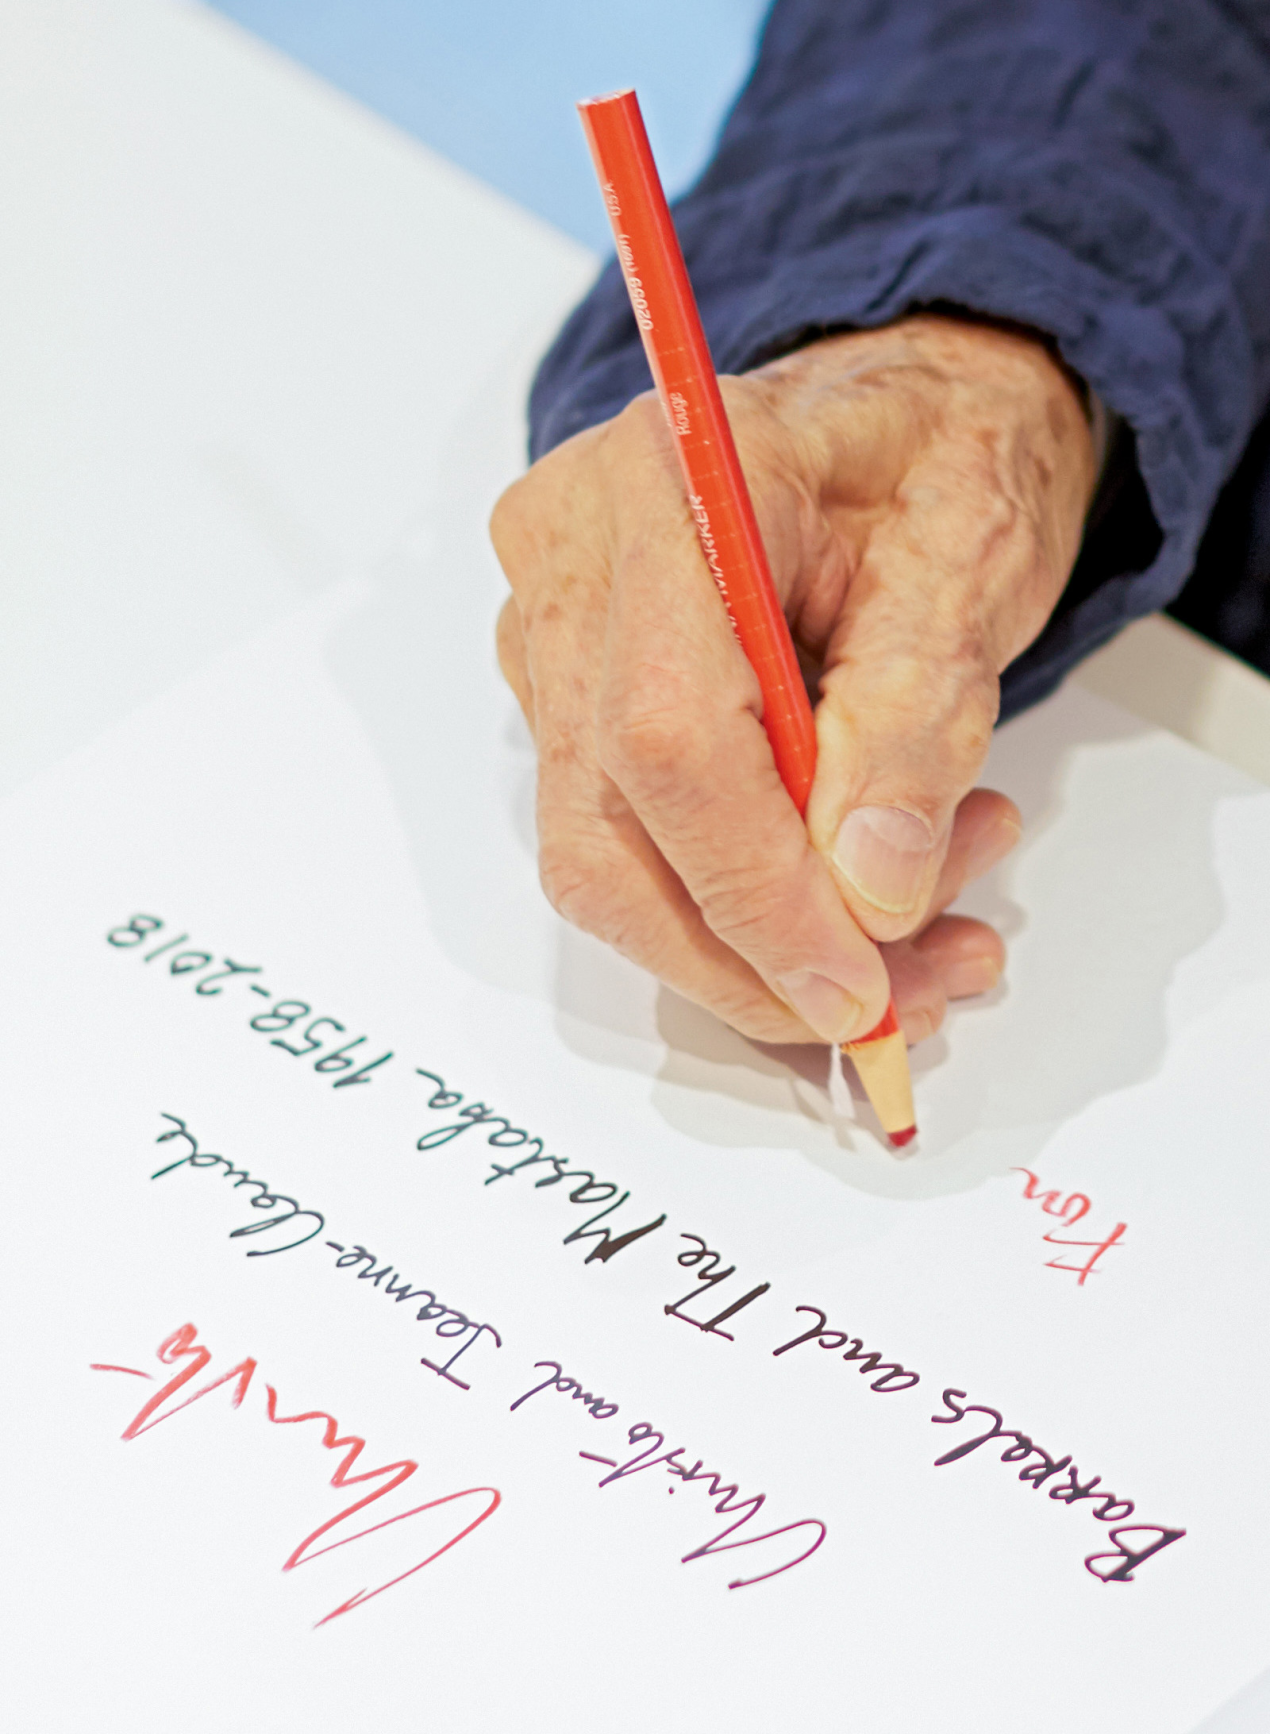 Christo
Christo and Jeanne-Claude
Barrels and The Mastaba 1958-2018
For
MARKER Rouge 02059 USA